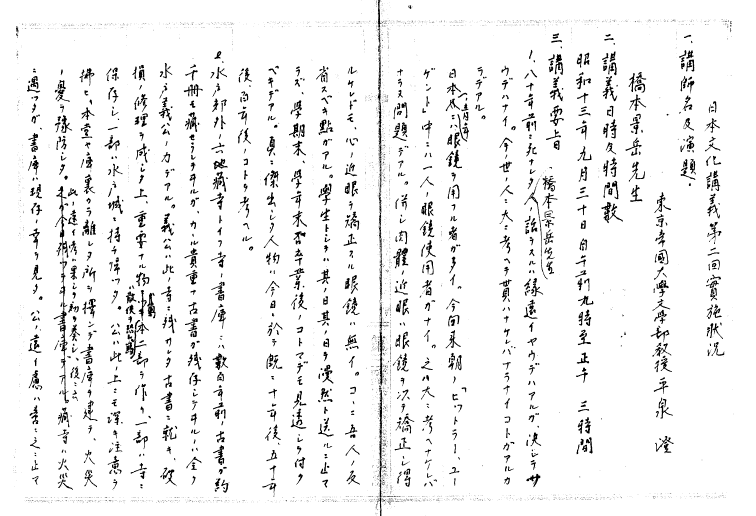 日本文化講義第二回實施狀況
一、講師名及演題、
東京帝國大學文學部教授平泉 澄
橋本景岳先生
二、講義日時及時間數
昭和十三年九月三十日自午前九時至正午 三時間
三、講義要旨(橋本景岳先生)
1、八十年前ニ死ナレタ人ノ話ヲスルハ緣遠イヤウデハアルガ、決シテサ
ウデハナイ。今ノ世ノ人ニ大ニ考ヘテ貰ハナケレバナラナイコトガアルカ
ラデアル。
日本人ニハ眼鏡ヲ用フル者ガ多イ。今囘來朝ノ「ヒットラー、ユー
ゲント」ノ中ニハ一人ノ眼鏡使用者ガナイ。之ハ大ニ考ヘナケレバ
ナラヌ問題デアル。併シ肉體ノ近眼ハ眼鏡ヲ以テ矯正シ得
ルケレドモ、心ノ近眼ヲ矯正スル眼鏡ハ無イ。コヽニ吾人ノ反
省スベキ點ガアル。學生トシテハ其ノ日其ノ日ヲ漫然ト送ルニ止マ
ラズ、學期末、學年末否卒業後ノコトマデモ見透シヲ付ク
ベキデアル。眞ニ傑出シタ人物ハ今日ニ於テ旣ニ十年後、五十年
後百年後ノコトヲ考ヘル。
2、水戸郊外ノ六地藏寺トイフ寺ノ書庫ニハ數百年前ノ古書ガ約
千册モ藏セラレテヰルガ、カヽル貴重ノ古書ガ殘存シテヰルハ全ク
水戸義公ノ力デアル。義公ハ此ノ寺ニ殘サレタ古書ニ就キ、破
損ノ修理ヲ成シタ上、重要ナル物ハ寫本二部ヲ作リ一部ハ寺ニ
保存シ、一部ハ水戸城ニ持チ歸ツタ。公ハ此ノ上ニモ深キ注意ヲ
拂ヒ、本堂ヤ庫裏カラ離レタ所ヲ擇ンデ書庫ヲ建テ、火災
ノ憂ヲ豫防シタ。此ノ遠イ考ハ果シテ功ヲ奏シ、後ニ六地藏寺ハ火災
ニ遇ツタガ書庫ハ現存ノ幸ヲ見タ。公ノ遠イ慮ハ啻ニ之ニ止マ